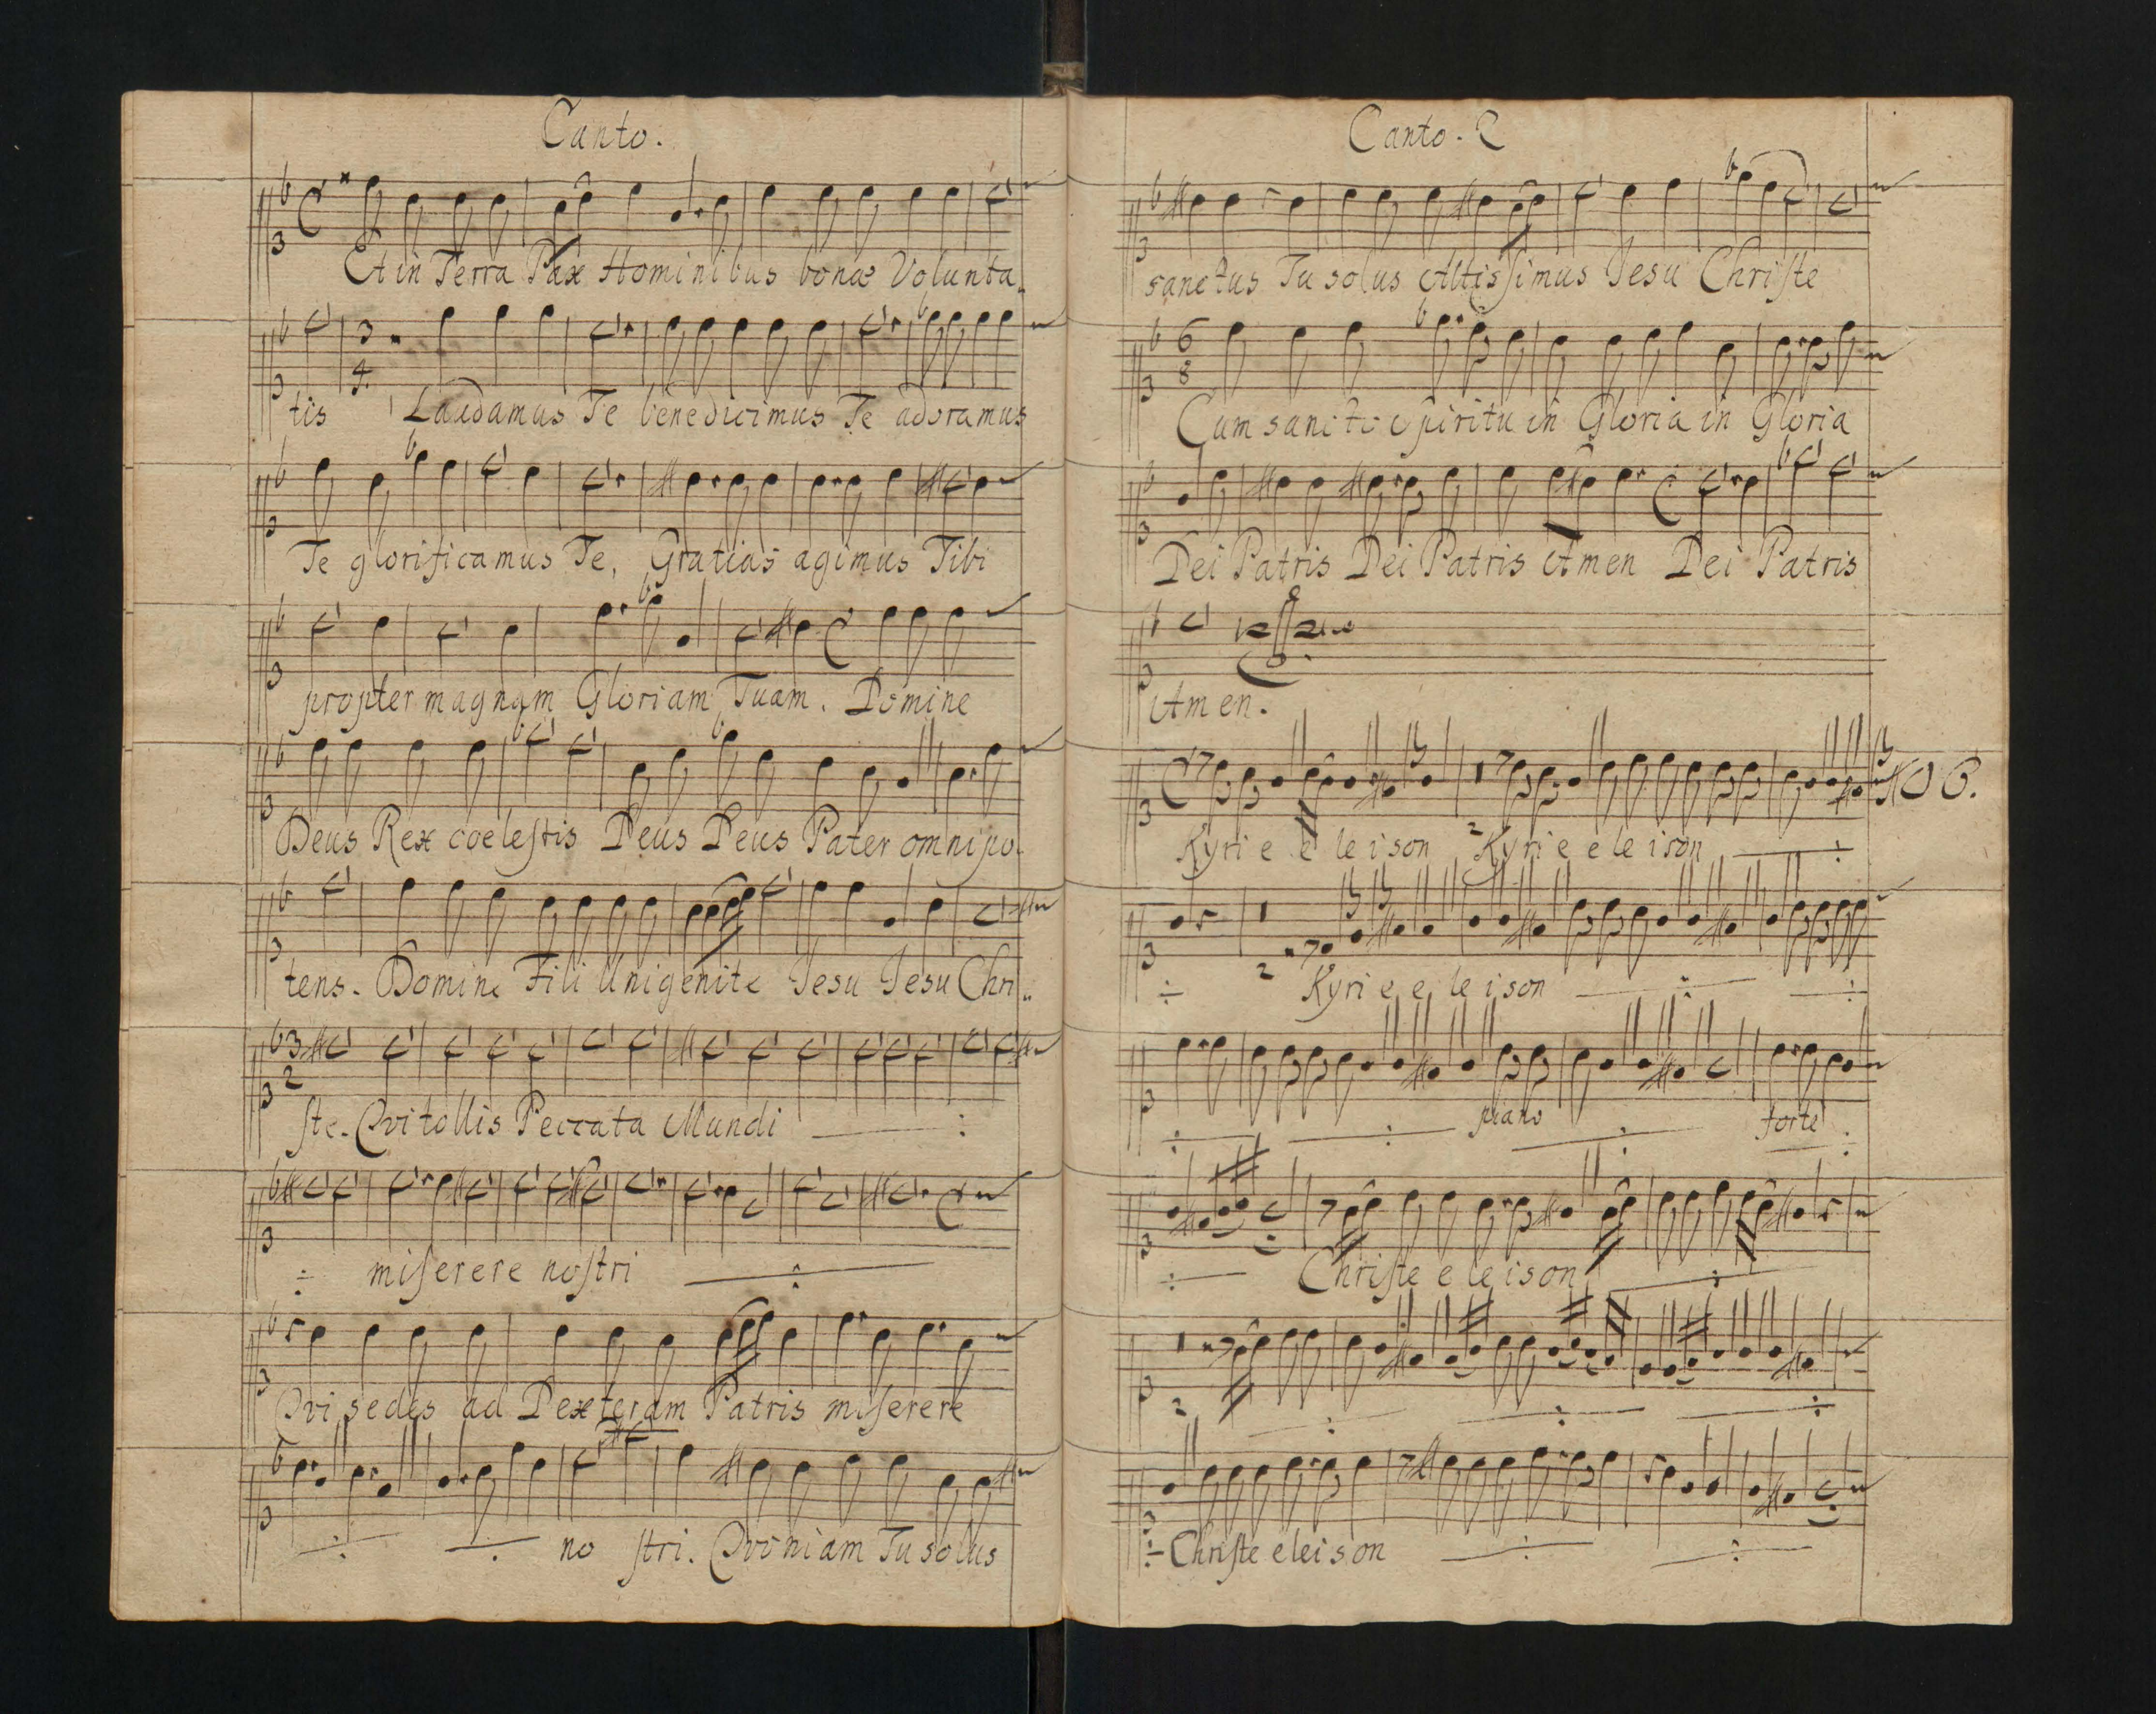 Canto.
Et in Terra Pax Hominibus bonæ Volunta
tis Laudamus Te benedicimus Te adoramus
Te glorificamus Te, Gratias agimus Tibi
propter magnam Gloriam Tuam. Domine
Deus Rex coeleſtis Deus Deus Pater omnipo-
tens. Domine Fili Unigenite Jesu Jesu Chri..
3
2
ſte. Qvi tollis Peccata Mundi
miſerere noſtri
Qvi sedes ad Dexteram Patris miſerere
no ſtri. Qvoniam Tu solus
Canto. 2
sanctus Tu solus Altisſimus Jesu Chriſte
6
8
Cum sancto spiritu in Gloria in Gloria
Dei Patris Dei Patris Amen Dei Patris
Amen.
Kyri e e le i son Kyri e e le i son
Kyri e e le i son
piano forte
Chriſte e le i son
Chriſte elei s on